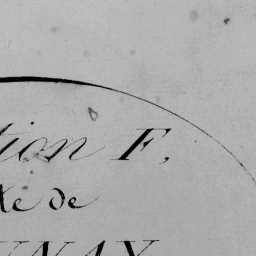 tion F,
xe de
UNAY